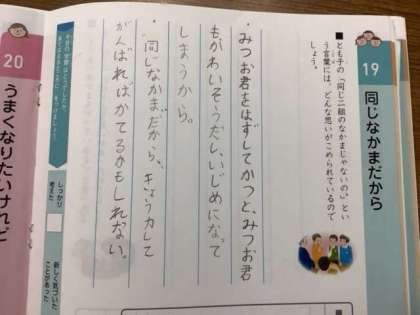 19
同じなかまだから
■とも子の「同じ二組のなかまじゃないの。」とい
う言葉には、どんな思いがこめられているので
しょう。
・みつお君をはずしてかつと、みつお君
もかわいそうだし、いじめになって
しまうから。
・同じなかまだから、きょう力して
がんばればかてるかもしれない。
しっかり
考えた
新しく気づいた
ことがあった
20
うまくなりたいけれど